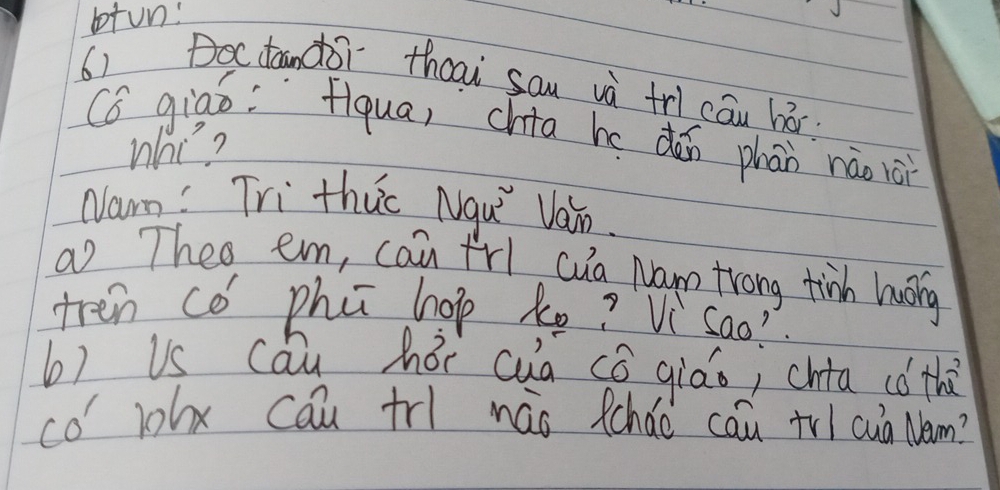 btvn:
6) Đọc đoạn đối thoại sau và trl câu hỏi.
Cô giáo: Hqua, chta hc đến phần nào rồi
nhỉ?
Nam: Tri thức Ngữ Văn.
a) Theo em, câu trl của Nam trong tình huống
trên có phù hợp ko? Vì sao?.
b) Vs câu hỏi của cô giáo, chta có thể
có nhx câu trl nào khác câu trl của Nam?